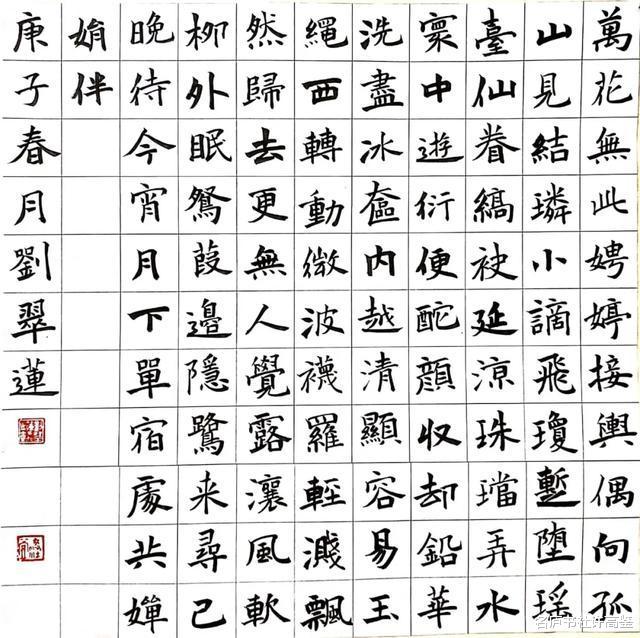 萬花無此娉婷接輿偶向孤
山見結璘小謫飛瓊蹔堕瑶
臺仙眷縞袂延涼珠璫弄水
寞中遊衍便酡顔収却鉛華
洗盡冰奩内越清顯容易玉
繩西轉動微波襪羅輕濺飄
然歸去更無人覺露瀼風軟
柳外眠鴛葭邉隱鷺来尋已
晚待今宵月下單宿處共嬋
娟伴
庚子春月劉翠蓮